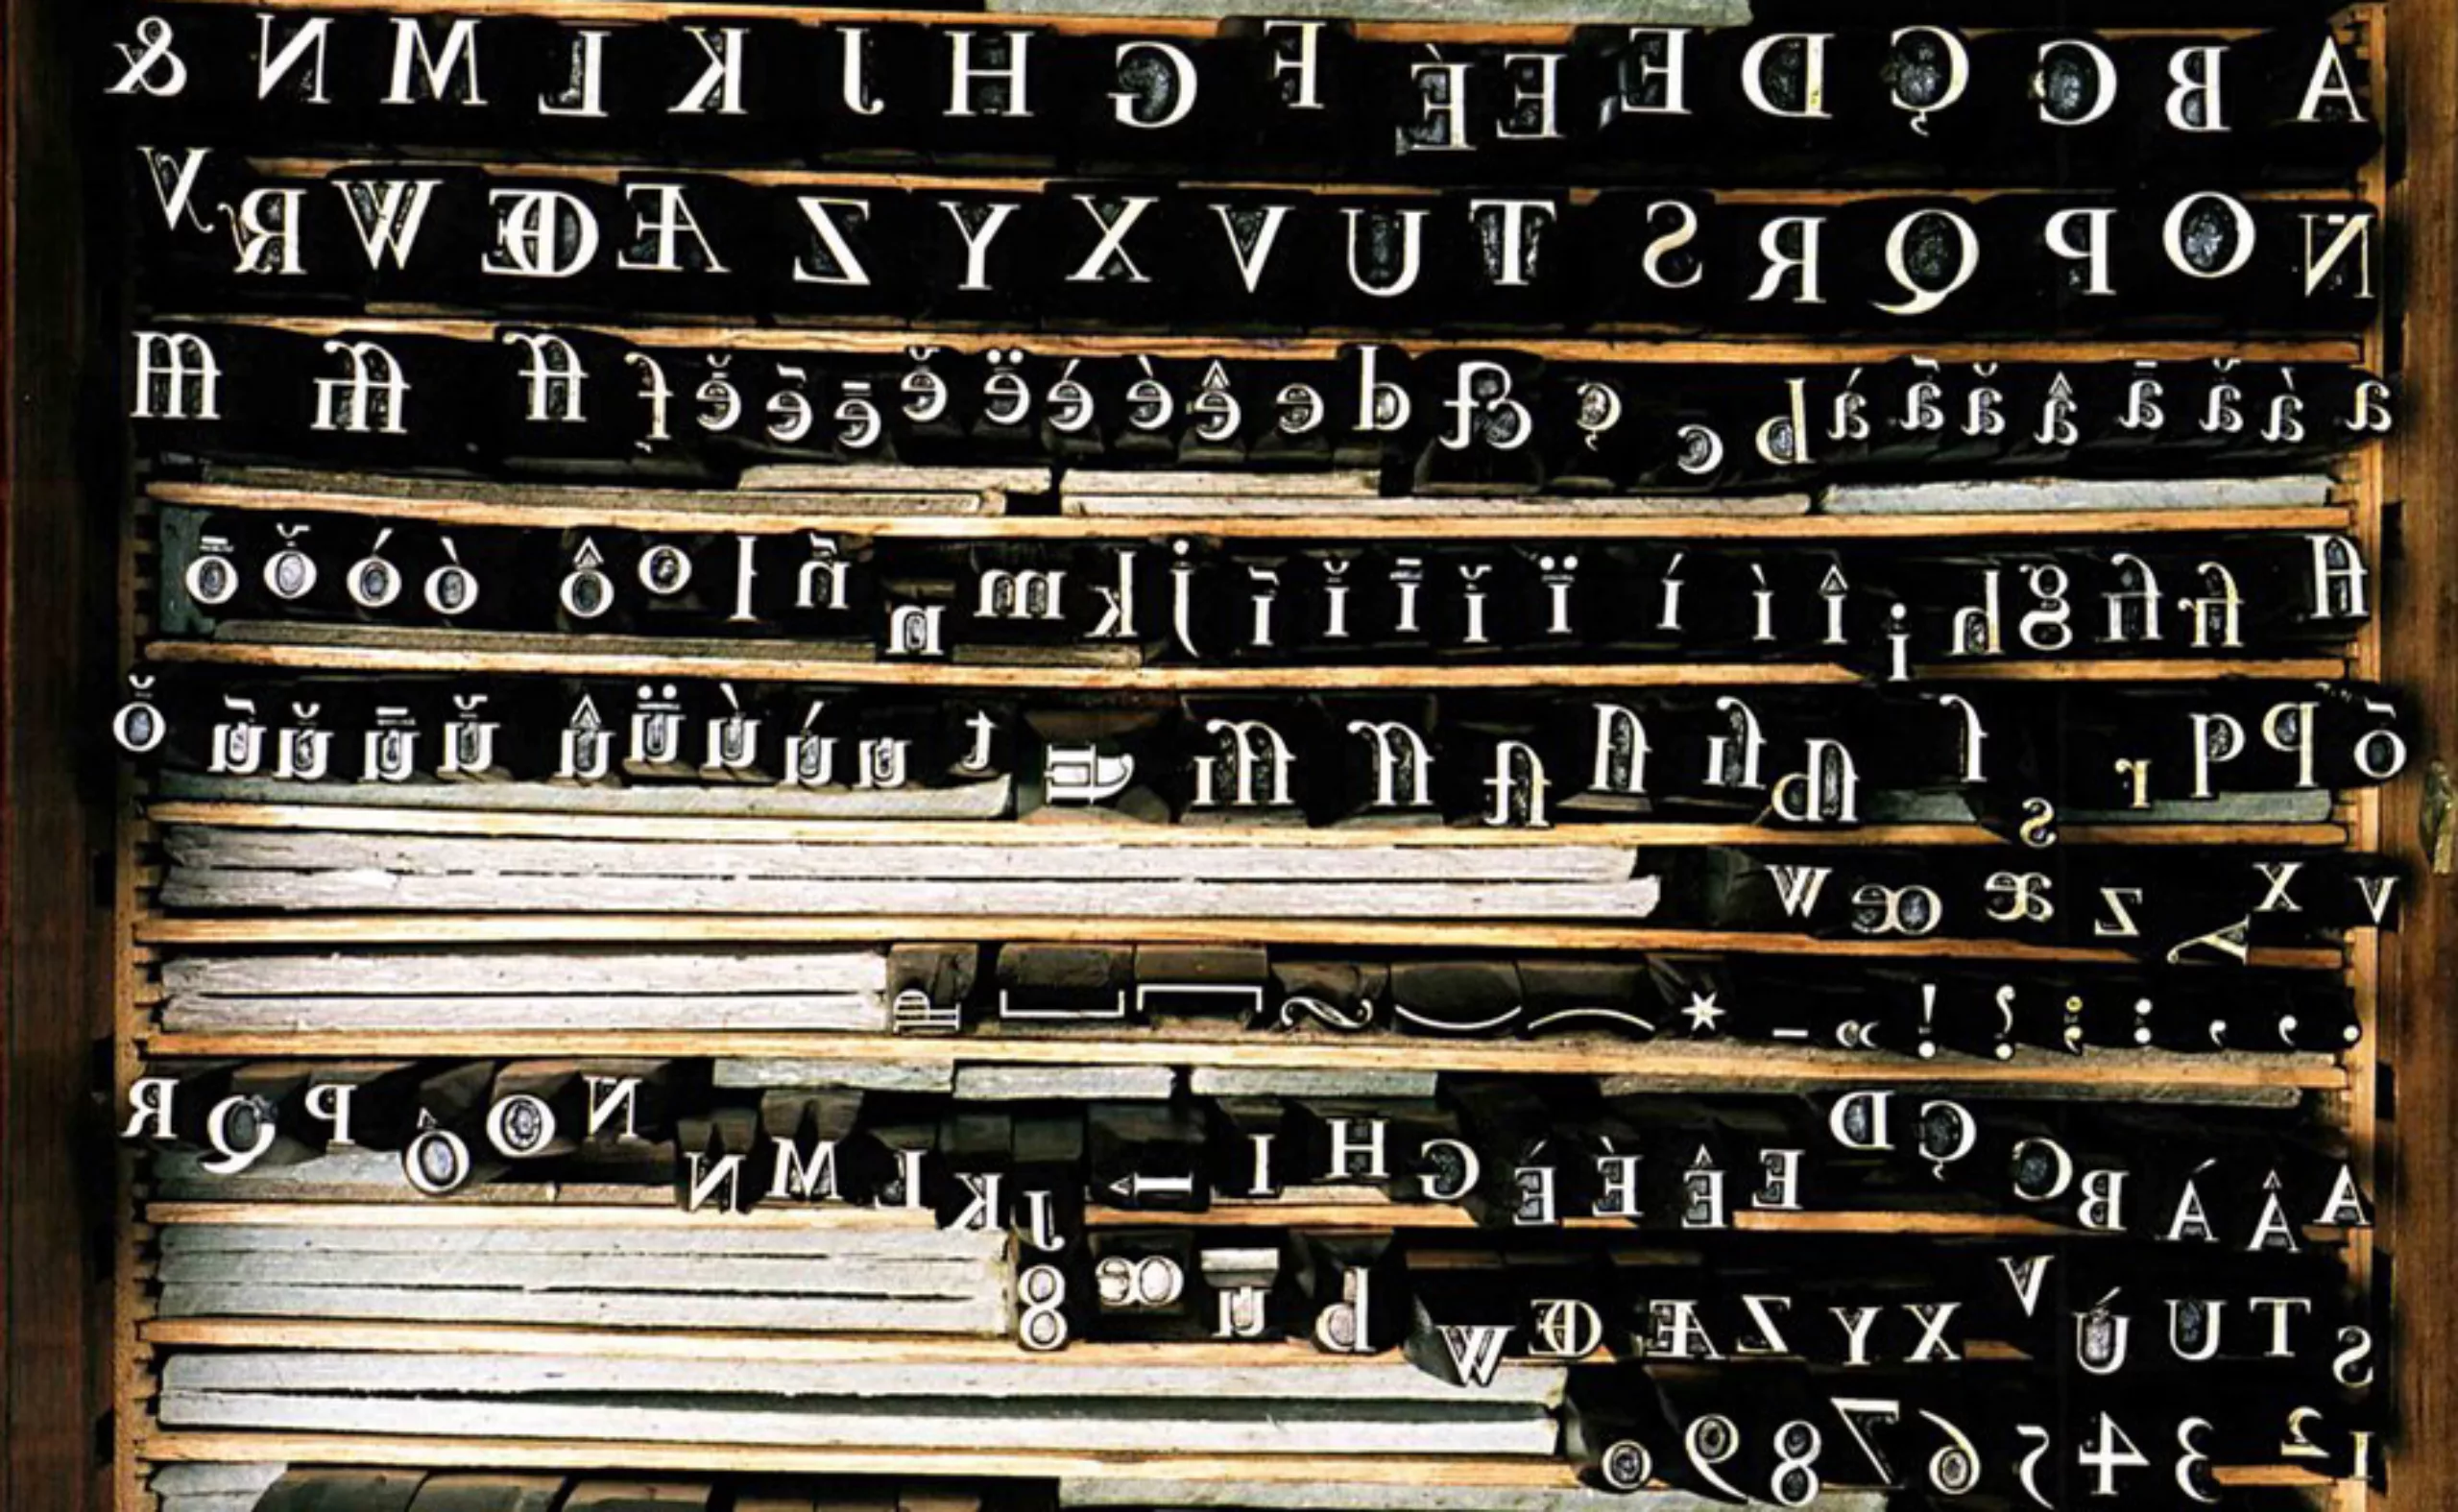 A B C Ç D E E É F G H J K L M N &
Ñ O P Q R S T U V X Y Z Æ Œ W R V
a á ǎ ā â ă ã á d c ç & d e ê è é ë ě ē ẽ ĕ f ff ffi fl
fl fi fi g h i î í í ï ĭ ī ǐ ĩ j k m n ñ l o ô ò ó ǒ ō
õ p q r s ſ ſb ſi ſl ſſ ſſi t u ú ù ü û ǔ ū ŭ ũ ŏ
v x y z æ œ w
. , ' : ; ? ! « - *
A Â Á B C Ç D E Ê È É G H I J K L M N Ñ O Ô P Q R
S T U Ú V X Y Z Æ Œ W d u œ 8
1 2 3 4 5 6 7 8 9 0